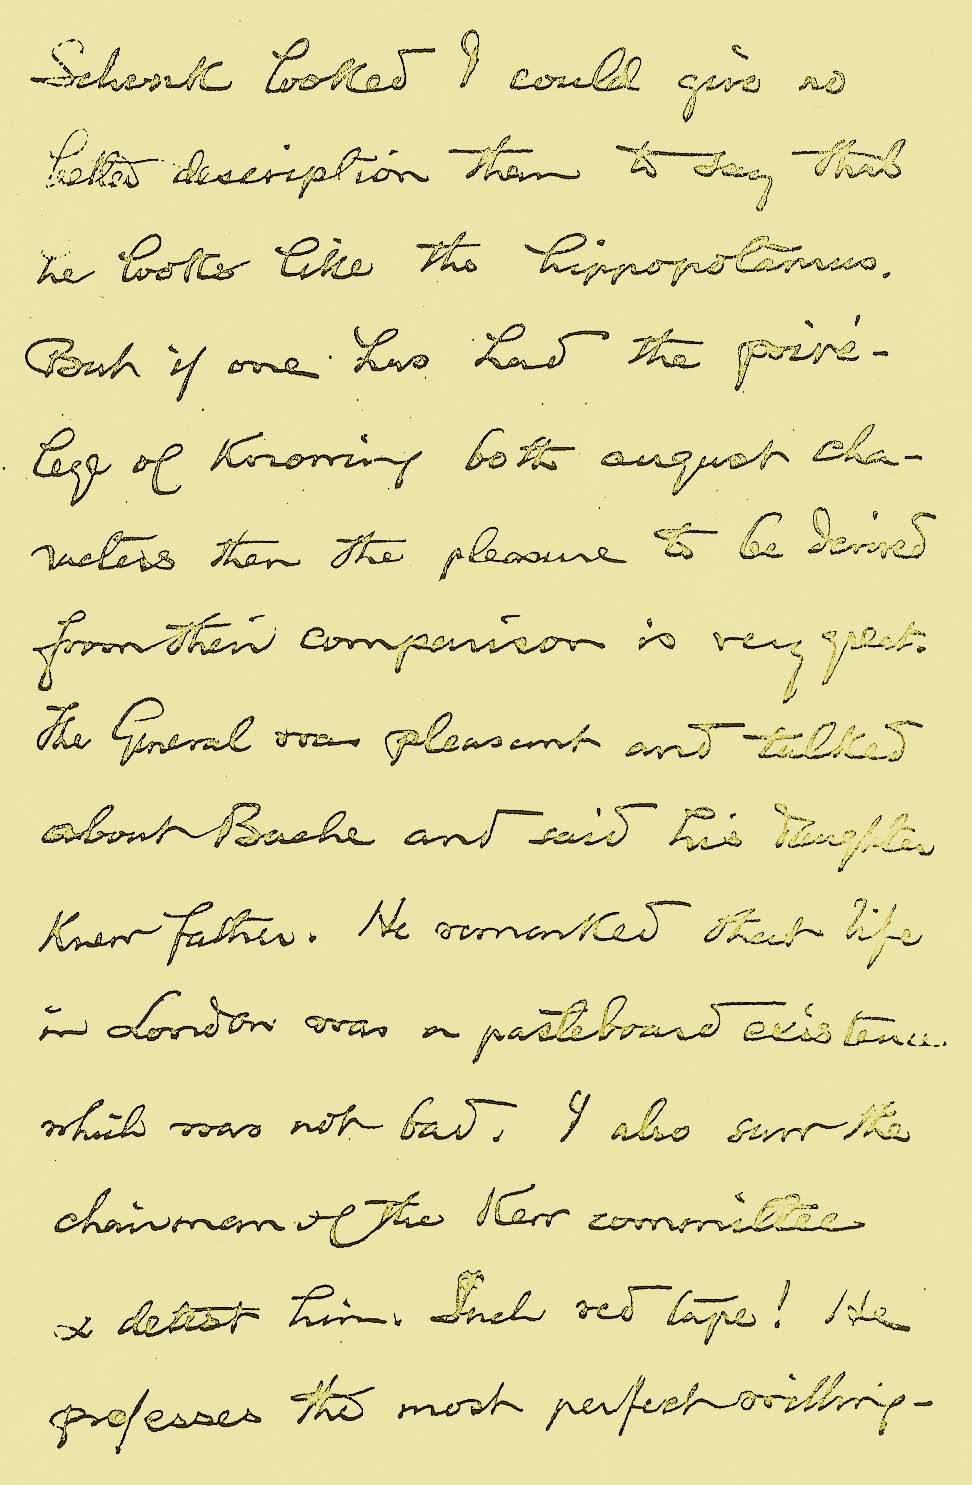 Schenk looked I could give no
better description than to say that
he looks like the hippopotamus.
But if one has had the privé-
lege of knowing both august cha-
racters then the pleasure to be derived
from their comparison is very great.
The General was pleasant and talked
about Bache and said his daughter
knew father. He remarked that life
in London was a pasteboard existence.
which was not bad. I also saw the
chairman of the Kerr committee
& detest him. Such red tape! He
professes the most perfect willing-